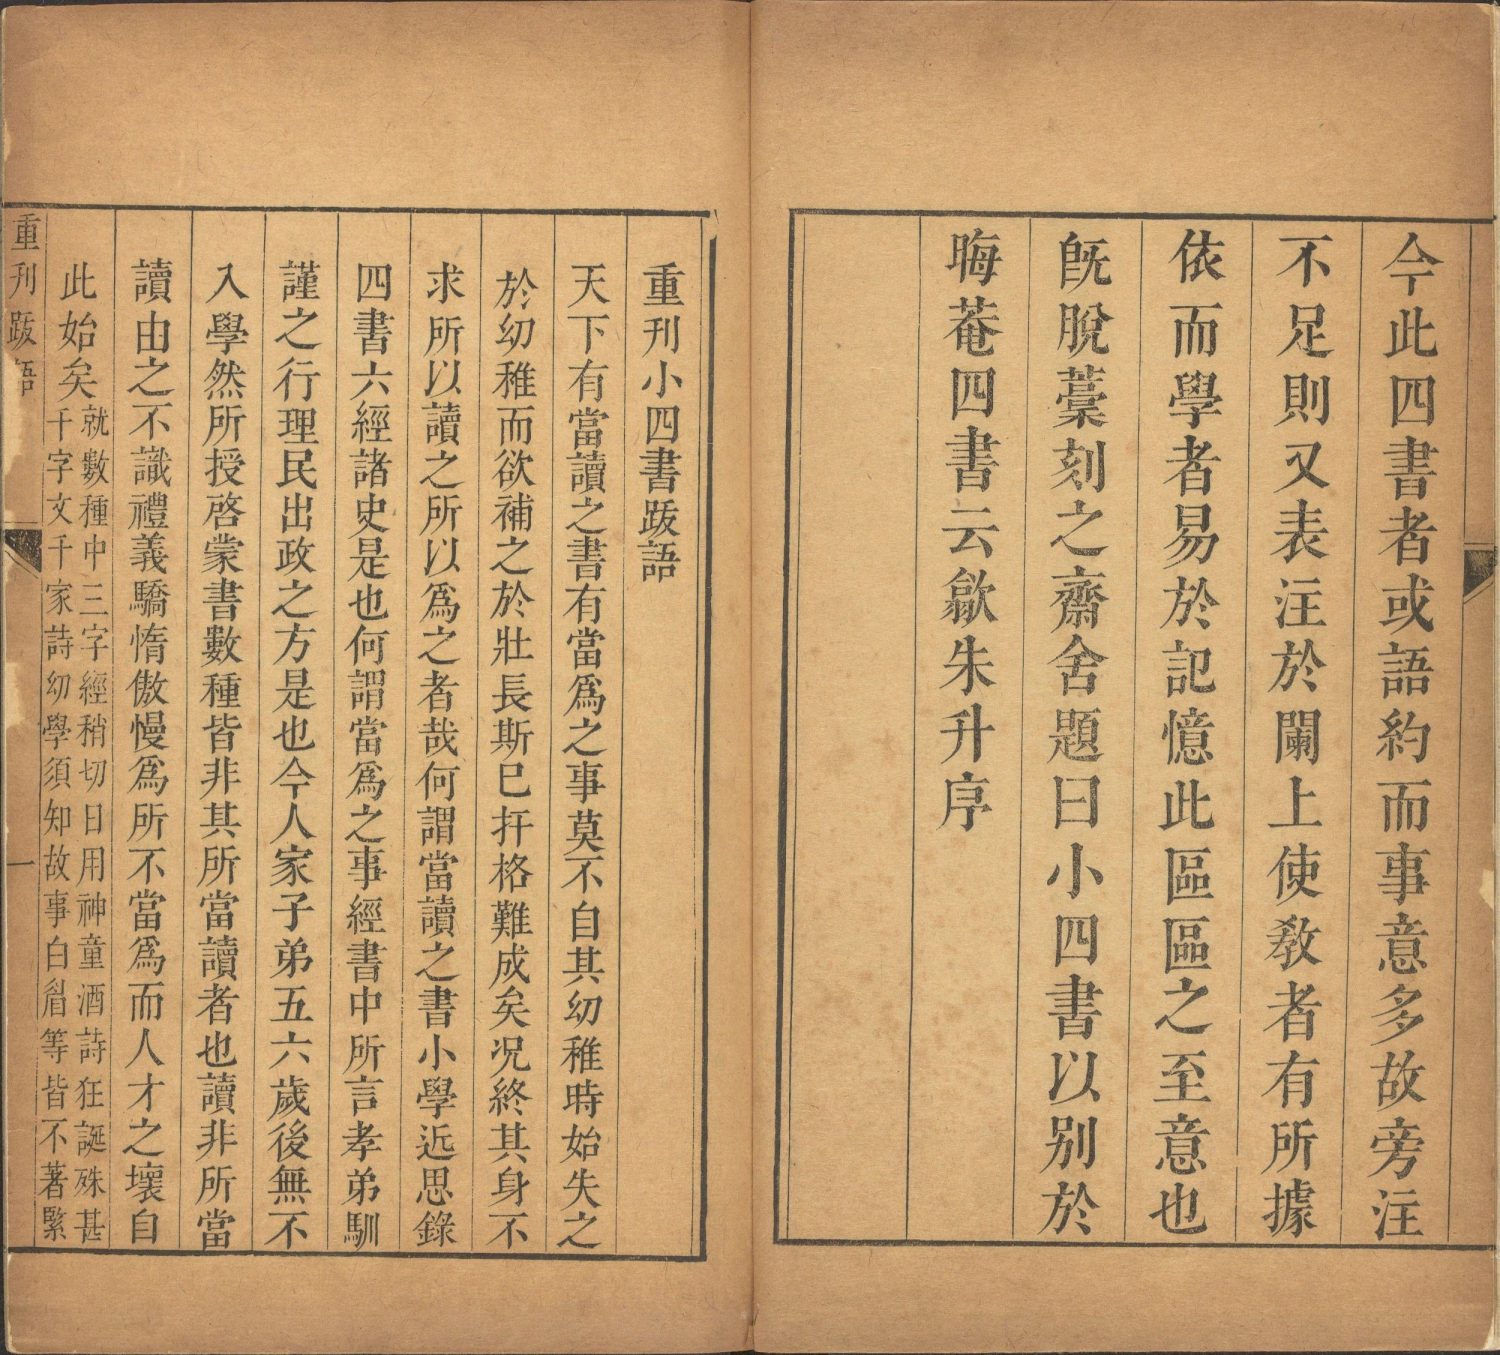 今此四書者或語約而事意多故旁注
不足則又表注於闌上使教者有所據
依而學者易於記憶此區區之至意也
旣脫藁刻之齋舍題曰小四書以别於
晦菴四書云歙朱升序
重刊小四書跋語
天下有當讀之書有當爲之事莫不自其幼稚時始失之
於幼稚而欲補之於壯長斯巳扞格難成矣况終其身不
求所以讀之所以爲之者哉何謂當讀之書小學近思錄
四書六經諸史是也何謂當爲之事經書中所言孝弟馴
謹之行理民出政之方是也今人家子弟五六歲後無不
入學然所授啓蒙書數種皆非其所當讀者也讀非所當
讀由之不識禮義驕惰傲慢爲所不當爲而人才之壞自
此始矣
就數種中三字經稍切日用神童酒詩狂誕殊甚
千字文千家詩幼學須知故事白眉等皆不著緊
重刊跋語
一